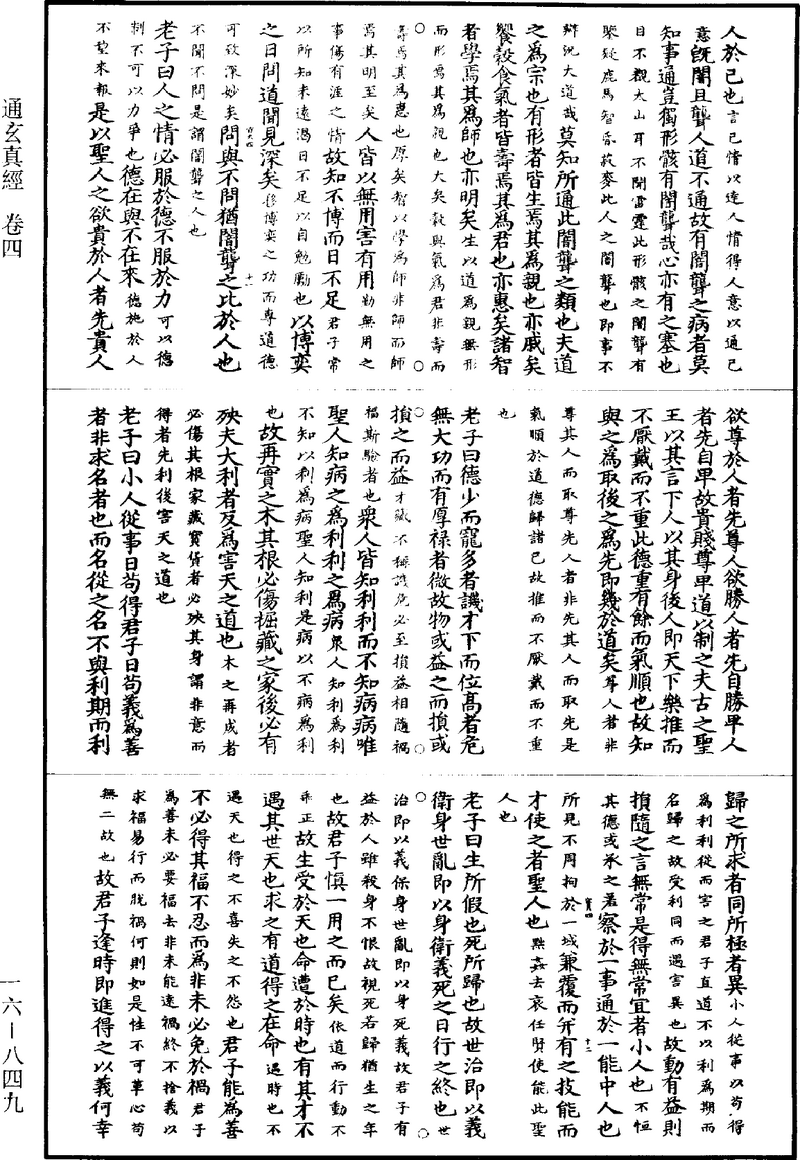 人於己也言己情以達人情得人意以通己
意既闇且聾人道不通故有闇聾之病者莫
知事通豈獨形骸有闇聾哉心亦有之塞也
目不觀太山耳不聞雷霆此形骸之闇聾有
聚疑鹿馬智昏菽麥此人之闇聾也即事不
辯況大道哉莫知所通此闇聾之類也夫道
之為宗也有形者皆生焉其為親也亦戚矣
饗穀食氣者皆壽焉其為君也亦惠矣諸智
者學焉其為師也亦明矣生以道為親無形
而形焉其為親也大矣穀與氣為君非壽而
壽焉其為惠也原矣智以學為師非師而師
焉其明至矣人皆以無用害有用勤無用之
事傷有涯之情故知不博而日不足君子常
以所知未遠渴日不足以自勉勵也以博奕
之日問道聞見深矣移博奕之功而專道德
可致深妙矣問與不問猶闇聾之比於人也
不聞不問是謂闇聾之人也
老子曰人之情必服於德不服於力可以德
制不可以力爭也德在與不在來德施於人
不望來報是以聖人之欲貴於人者先貴人
欲尊於人者先尊人欲勝人者先自勝卑人
者先自卑故貴賤尊卑道以制之夫古之聖
王以其言下人以其身後人即天下樂推而
不厭戴而不重此德重有餘而氣順也故知
與之為取後之為先即幾於道矣尊人者非
尊其人而取尊先人者非先其人而取先是
氣順於道德歸諸己故推而不厭戴而不重
也
老子曰德少而寵多者譏才下而位高者危
無大功而有厚祿者微故物或益之而損或
損之而益才職不稱譏危必至損益相隨禍
福斯驗者也衆人皆知利利而不知病病唯
聖人知病之為利利之為病衆人知利為利
不知以利為病聖人知利是病以不病為利
也故再實之木其根必傷掘藏之家後必有
殃夫大利者反為害天之道也木之再成者
必傷其根家藏寶貨者必殃其身謂非意而
得者先利後害天之道也
老子曰小人從事曰苟得君子曰苟義為善
者非求名者也而名從之名不與利期而利
歸之所求者同所極者異小人從事以苟得
為利利從而害之君子直道不以利為期而
名歸之故受利同而遇害異也故動有益則
損隨之言無常是得無常宜者小人也不恒
其德或承之羞察於一事通於一能中人也
所見不周拘於一域兼覆而并有之技能而
才使之者聖人也黜姦去哀任賢使能此聖
人也
老子曰生所假也死所歸也故世治即以義
衛身世亂即以身衛義死之日行之終也世
治即以義保身世亂即以身死義故君子有
益於人雖殺身不恨故視死若歸猶生之年
也故君子慎一用之而已矣依道而行動不
乖正故生受於天也命遭於時也有其才不
遇其世天也求之有道得之在命遇時也不
遇天也得之不喜失之不怨也君子能為善
不必得其福不忍而為非未必免於禍君子
為善未必要福去非未能遠禍終不捨義以
求福易行而脫禍何則如是性不可革心苟
無二故也故君子逢時即進得之以義何幸
通玄真經 卷四
一六—八四九